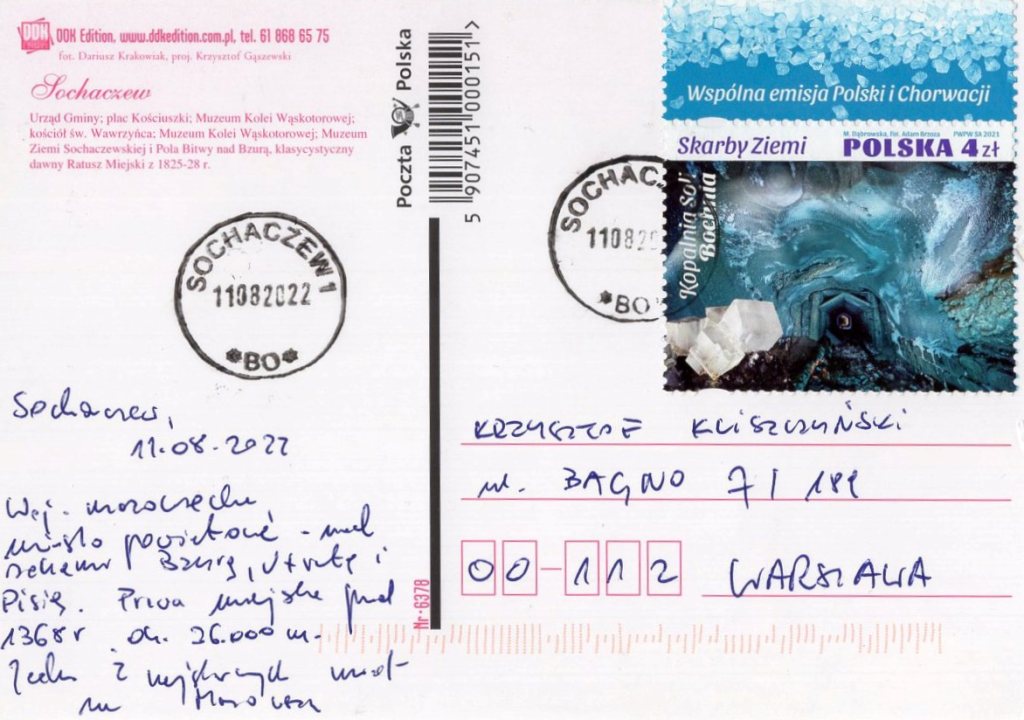 DDK Edition, www.ddkedition.com.pl, tel. 61 868 65 75
fot. Dariusz Krakowiak, proj. Krzysztof Gąszewski
Sochaczew
Urząd Gminy; plac Kościuszki; Muzeum Kolei Wąskotorowej;
kościół św. Wawrzyńca; Muzeum Kolei Wąskotorowej; Muzeum
Ziemi Sochaczewskiej i Pola Bitwy nad Bzurą, klasycystyczny
dawny Ratusz Miejski z 1825-28 r.
SOCHACZEW 1
11082022
*BO*
Sochaczew,
11.08.2022
Woj. mazowieckie,
miasto powiatowe - nad
rzekami Bzurą, Utratą i
Pisią. Prawa miejskie przed
1368 r ok. 36.000 m.
Jedno z najstarszych miast
na Mazowszu
Nr-6378
Poczta Polska
5 907451 000151 >
SOCHACZ
110822
*BO
Wspólna emisja Polski i Chorwacji
Skarby Ziemi
M. Dąbrowska, Fot. Adam Brzoza PWPW SA 2021
POLSKA 4 zł
Kopalnia Soli
Bochnia
KRZYSZTOF KLISZCZYŃSKI
ul. BAGNO 7/ 189
00-112 WARSZAWA